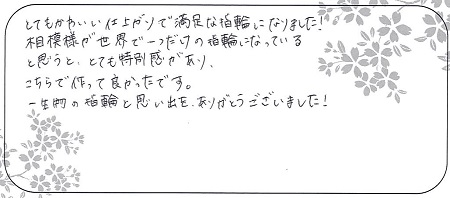 とてもかわいい仕上がりで満足な指輪になりました!
相模様が世界で一つだけの指輪になっている
と思うと、とても特別感があり、
こちらで作って良かったです。
一生物の指輪と思い出を、ありがとうございました!